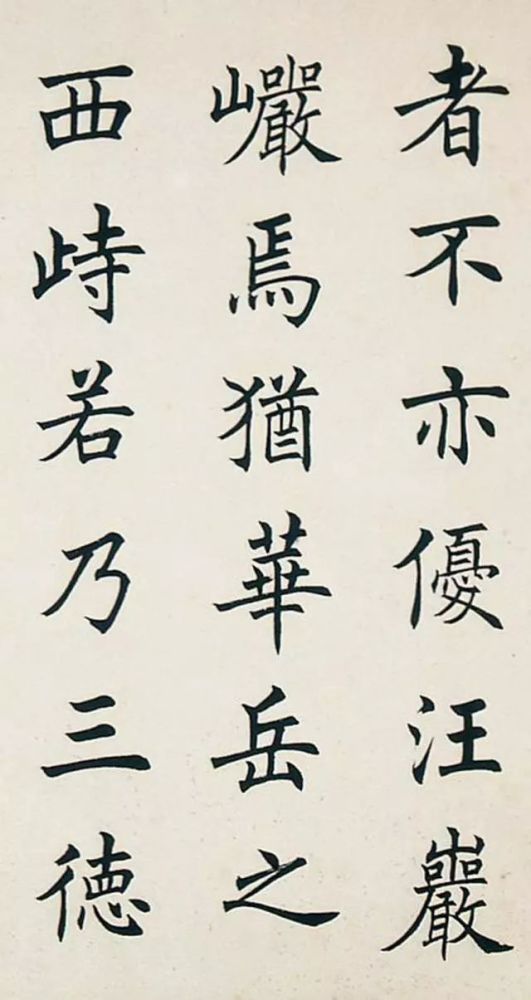 者不亦優汪巖
巗焉猶華岳之
西峙若乃三徳